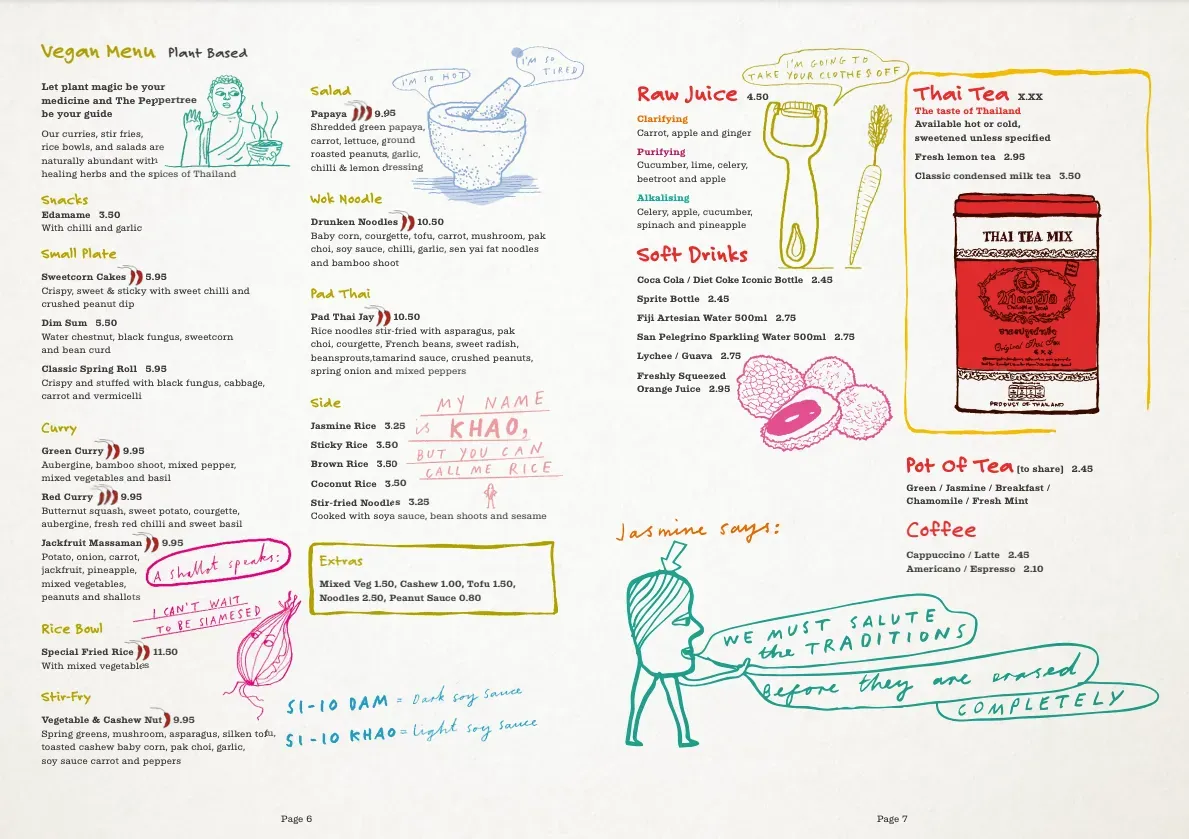 Vegan Menu Plant Based
Let plant magic be your
medicine and The Peppertree
be your guide
Our curries, stir fries,
rice bowls, and salads are
naturally abundant with
healing herbs and the spices of Thailand
Snacks
Edamame 3.50
With chilli and garlic
Small Plate
Sweetcorn Cakes 5.95
Crispy, sweet & sticky with sweet chilli and
crushed peanut dip
Dim Sum 5.50
Water chestnut, black fungus, sweetcorn
and bean curd
Classic Spring Roll 5.95
Crispy and stuffed with black fungus, cabbage,
carrot and vermicelli
Curry
Green Curry 9.95
Aubergine, bamboo shoot, mixed pepper,
mixed vegetables and basil
Red Curry 9.95
Butternut squash, sweet potato, courgette,
aubergine, fresh red chilli and sweet basil
Jackfruit Massaman 9.95
Potato, onion, carrot,
jackfruit, pineapple,
mixed vegetables,
peanuts and shallots
A shallot speaks:
I CAN'T WAIT
TO BE SIAMESED
Rice Bowl
Special Fried Rice 11.50
With mixed vegetables
Stir-Fry
Vegetable & Cashew Nut 9.95
Spring greens, mushroom, asparagus, silken tofu,
toasted cashew baby corn, pak choi, garlic,
soy sauce carrot and peppers
I'M SO HOT
I'M SO
TIRED
Salad
Papaya 9.95
Shredded green papaya,
carrot, lettuce, ground
roasted peanuts, garlic,
chilli & lemon dressing
Wok Noodle
Drunken Noodles 10.50
Baby corn, courgette, tofu, carrot, mushroom, pak
choi, soy sauce, chilli, garlic, sen yai fat noodles
and bamboo shoot
Pad Thai
Pad Thai Jay 10.50
Rice noodles stir-fried with asparagus, pak
choi, courgette, French beans, sweet radish,
beansprouts,tamarind sauce, crushed peanuts,
spring onion and mixed peppers
Side
Jasmine Rice 3.25
Sticky Rice 3.50
Brown Rice 3.50
Coconut Rice 3.50
Stir-fried Noodles 3.25
Cooked with soya sauce, bean shoots and sesame
MY NAME
is KHAO,
BUT YOU CAN
CALL ME RICE
Extras
Mixed Veg 1.50, Cashew 1.00, Tofu 1.50,
Noodles 2.50, Peanut Sauce 0.80
SI-IO DAM = Dark soy sauce
SI-IO KHAO = light soy sauce
Page 6
I'M GOING TO
TAKE YOUR CLOTHES OFF
Raw Juice 4.50
Clarifying
Carrot, apple and ginger
Purifying
Cucumber, lime, celery,
beetroot and apple
Alkalising
Celery, apple, cucumber,
spinach and pineapple
Soft Drinks
Coca Cola / Diet Coke Iconic Bottle 2.45
Sprite Bottle 2.45
Fiji Artesian Water 500ml 2.75
San Pelegrino Sparkling Water 500ml 2.75
Lychee / Guava 2.75
Freshly Squeezed
Orange Juice 2.95
Thai Tea X.XX
The taste of Thailand
Available hot or cold,
sweetened unless specified
Fresh lemon tea 2.95
Classic condensed milk tea 3.50
THAI TEA MIX
Original Thai Tea
PRODUCT OF THAILAND
Pot Of Tea [to share] 2.45
Green / Jasmine / Breakfast /
Chamomile / Fresh Mint
Coffee
Cappuccino / Latte 2.45
Americano / Espresso 2.10
Jasmine says:
WE MUST SALUTE
the TRADITIONS
Before they are erased
COMPLETELY
Page 7